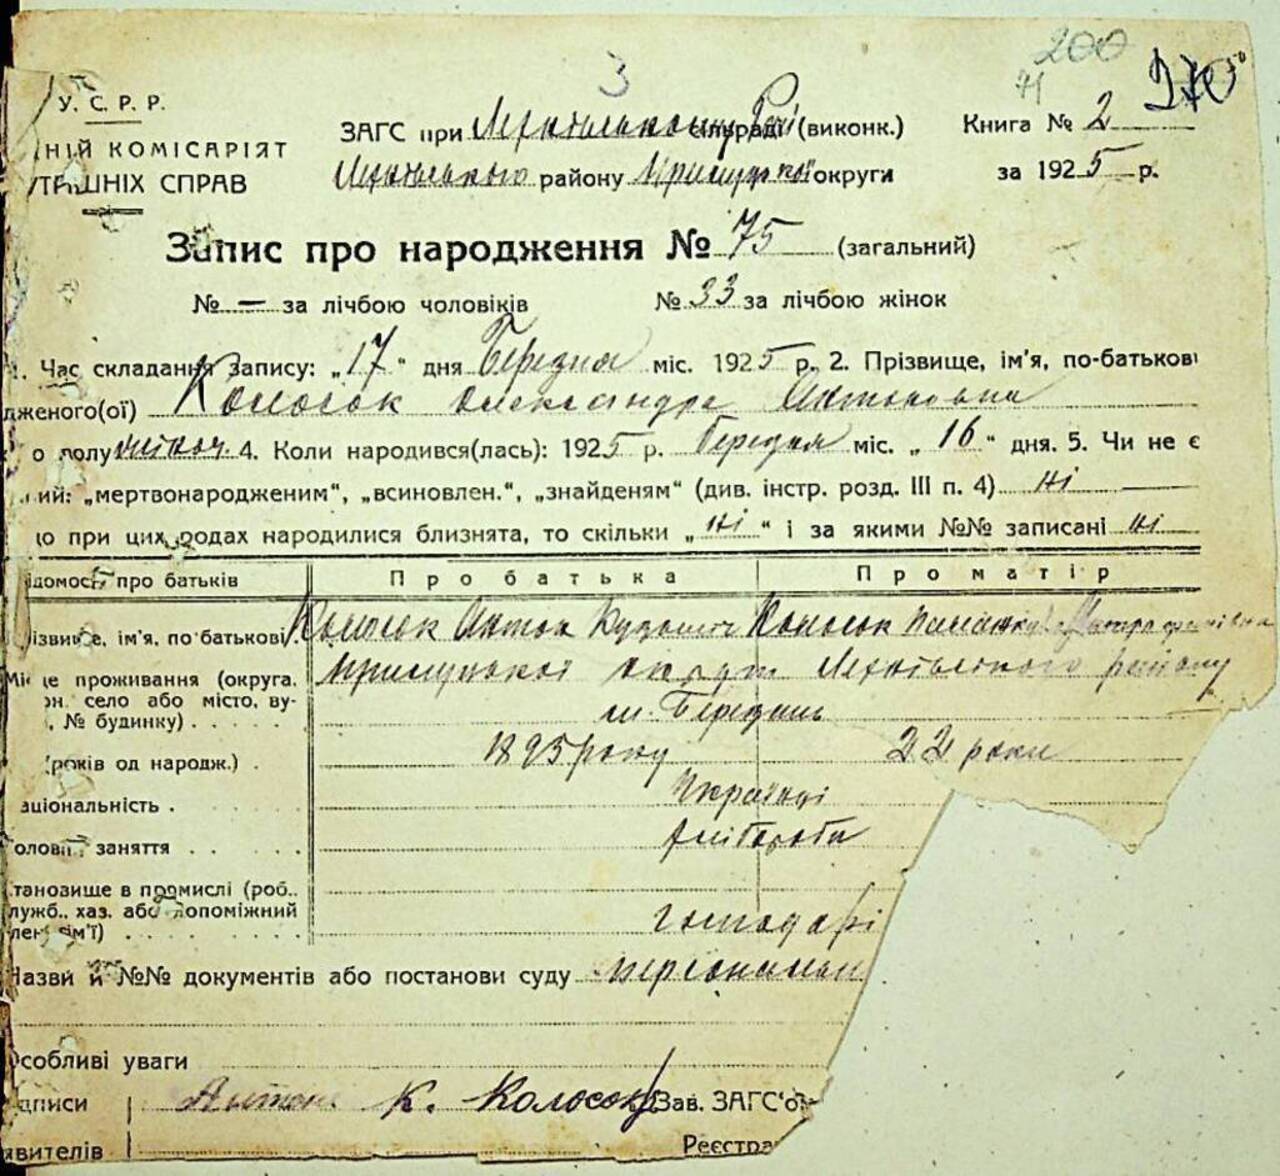 200
3
71
270
У. С. Р. Р.
НІЙ КОМІСАРІЯТ
ТРІШНІХ СПРАВ
ЗАГС при (виконк.)
Книга № 2
району Прилуцької округи
за 1925 р.
Запис про народження № 75 (загальний)
№ — за лічбою чоловіків № 33 за лічбою жінок
1. Час складання запису: „17“ дня Березня міс. 1925 р. 2. Прізвище, ім'я, по-батькові
дженого(ої) Колосок Олександра Антоновна
о полу жіноч. 4. Коли народився(лась): 1925 р. Березня міс. „16“ дня. 5. Чи не є
ий: „мертвонародженим“, „всиновлен.“, „знайденям“ (див. інстр. розд. III п. 4) ні
що при цих родах народилися близнята, то скільки „ні“ і за якими №№ записані ні
ідомості про батьків Про батька Про матір
різвище, ім'я, по батькові Колосок Антон Колосок
Місце проживання (округа, Прилуцької округи району
он, село або місто, ву-
, № будинку)
(років од народж.) 1895 року 22 роки
аціональність Українці
Головні заняття хлібороби
тановище в промислі (роб.,
лужб., хаз. або допоміжний
лен сім'ї) господарі
Назви й №№ документів або постанови суду
Особливі уваги
дписи Антон К. Колосок Зав. ЗАГС'ом
явителів Реєстра